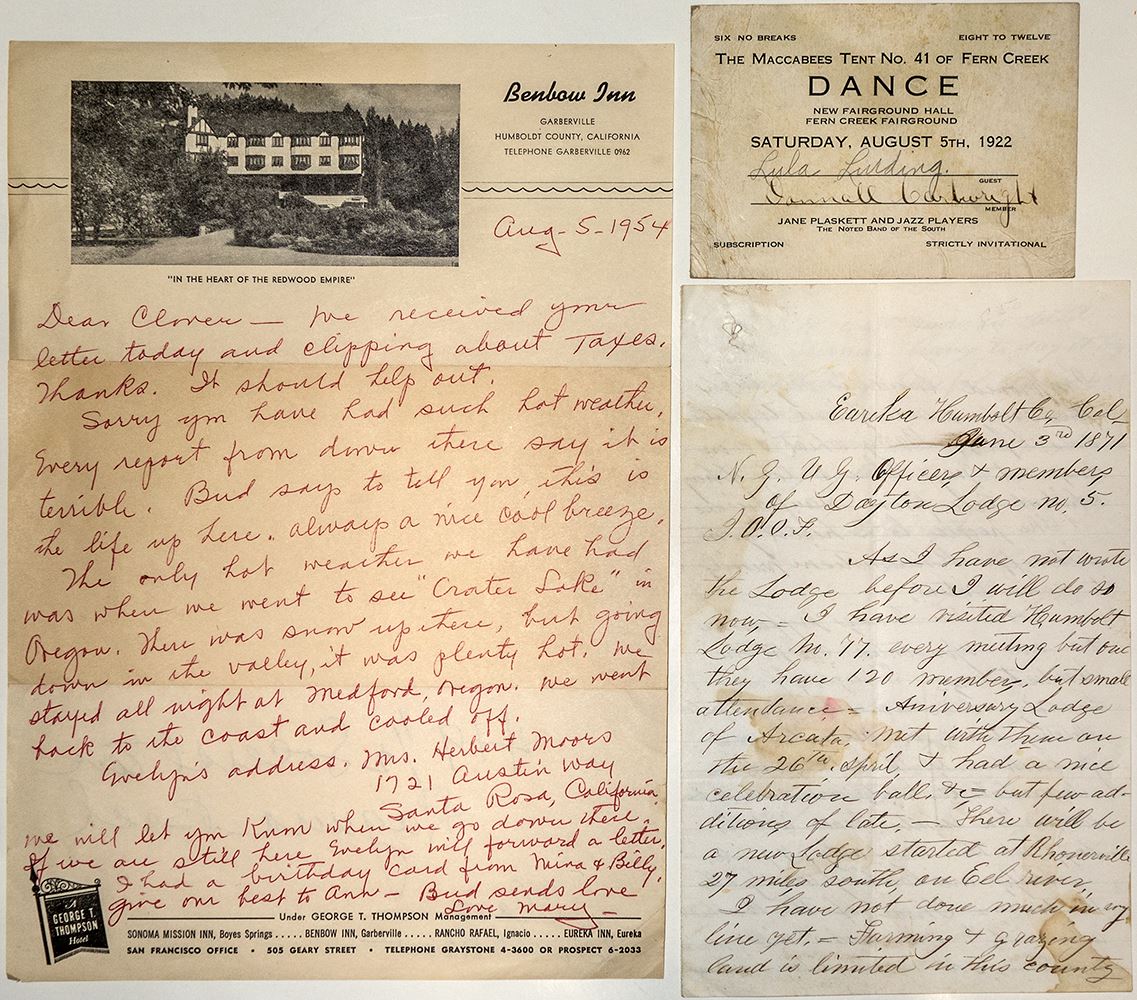 Benbow Inn
GARBERVILLE
HUMBOLDT COUNTY, CALIFORNIA
TELEPHONE GARBERVILLE 0962
"IN THE HEART OF THE REDWOOD EMPIRE"
Aug-5-1954
Dear Clover — We received your
letter today and clipping about Taxes.
Thanks. It should help out.
Sorry you have had such hot weather,
Every report from down there say it is
terrible. Bud says to tell you, this is
the life up here. always a nice cool breeze.
The only hot weather we have had
was when we went to see "Crater Lake" in
Oregon. There was snow up there, but going
down in the valley, it was plenty hot. We
stayed all night at Medford, Oregon. We went
back to the coast and cooled off.
Evelyn's address. Mrs. Herbert Moors
1721 Austin Way
Santa Rosa, California.
We will let you know when we go down there.
If we are still here Evelyn will forward a letter.
I had a birthday card from Mina & Billy.
Give our best to Ann — Bud sends love
Love Mary —
A
GEORGE T.
THOMPSON
Hotel
Under GEORGE T. THOMPSON Management
SONOMA MISSION INN, Boyes Springs ..... BENBOW INN, Garberville ..... RANCHO RAFAEL, Ignacio .... EUREKA INN, Eureka
SAN FRANCISCO OFFICE • 505 GEARY STREET • TELEPHONE GRAYSTONE 4-3600 OR PROSPECT 6-2033
SIX NO BREAKS EIGHT TO TWELVE
THE MACCABEES TENT NO. 41 OF FERN CREEK
DANCE
NEW FAIRGROUND HALL
FERN CREEK FAIRGROUND
SATURDAY, AUGUST 5TH, 1922
Lula
GUEST
Cartwright
MEMBER
JANE PLASKETT AND JAZZ PLAYERS
THE NOTED BAND OF THE SOUTH
SUBSCRIPTION STRICTLY INVITATIONAL
Eureka Humbolt Co, Cal
June 3rd 1871
N. G. V. G. Officers & members
of Dayton Lodge no. 5.
I.O.O.F.
As I have not wrote
the Lodge before I will do so
now = I have visited Humbolt
Lodge No. 77. every meeting but one
they have 120 members, but small
attendance = Aniversary Lodge
of Arcata, met with them on
the 26th April, & had a nice
celebration ball, &c = but few ad-
ditions of late. — There will be
a new Lodge started at Rhonerville
27 miles south, on Eel river.
I have not done much in my
line yet. = Farming & grazing
land is limited in this county